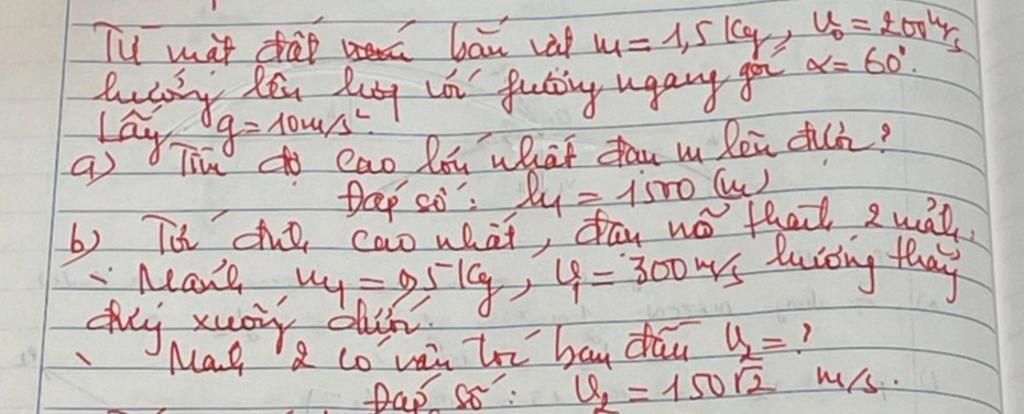 Từ mặt đất bắn vật m = 1,5 Kg, v₀ = 200 m/s
hướng lên hợp với phương ngang góc α = 60°.
Lấy g = 10 m/s².
a) Tìm độ cao lớn nhất đạn m lên được?
Đáp số: h₁ = 1500 (m)
b) Tới đỉnh cao nhất, đạn nổ thành 2 mảnh.
Mảnh m₁ = 0,5 Kg, v₁ = 300 m/s hướng thẳng
đứng xuống dưới.
Mảnh 2 có vận tốc ban đầu v₂ = ?
Đáp số: v₂ = 150√2 m/s.